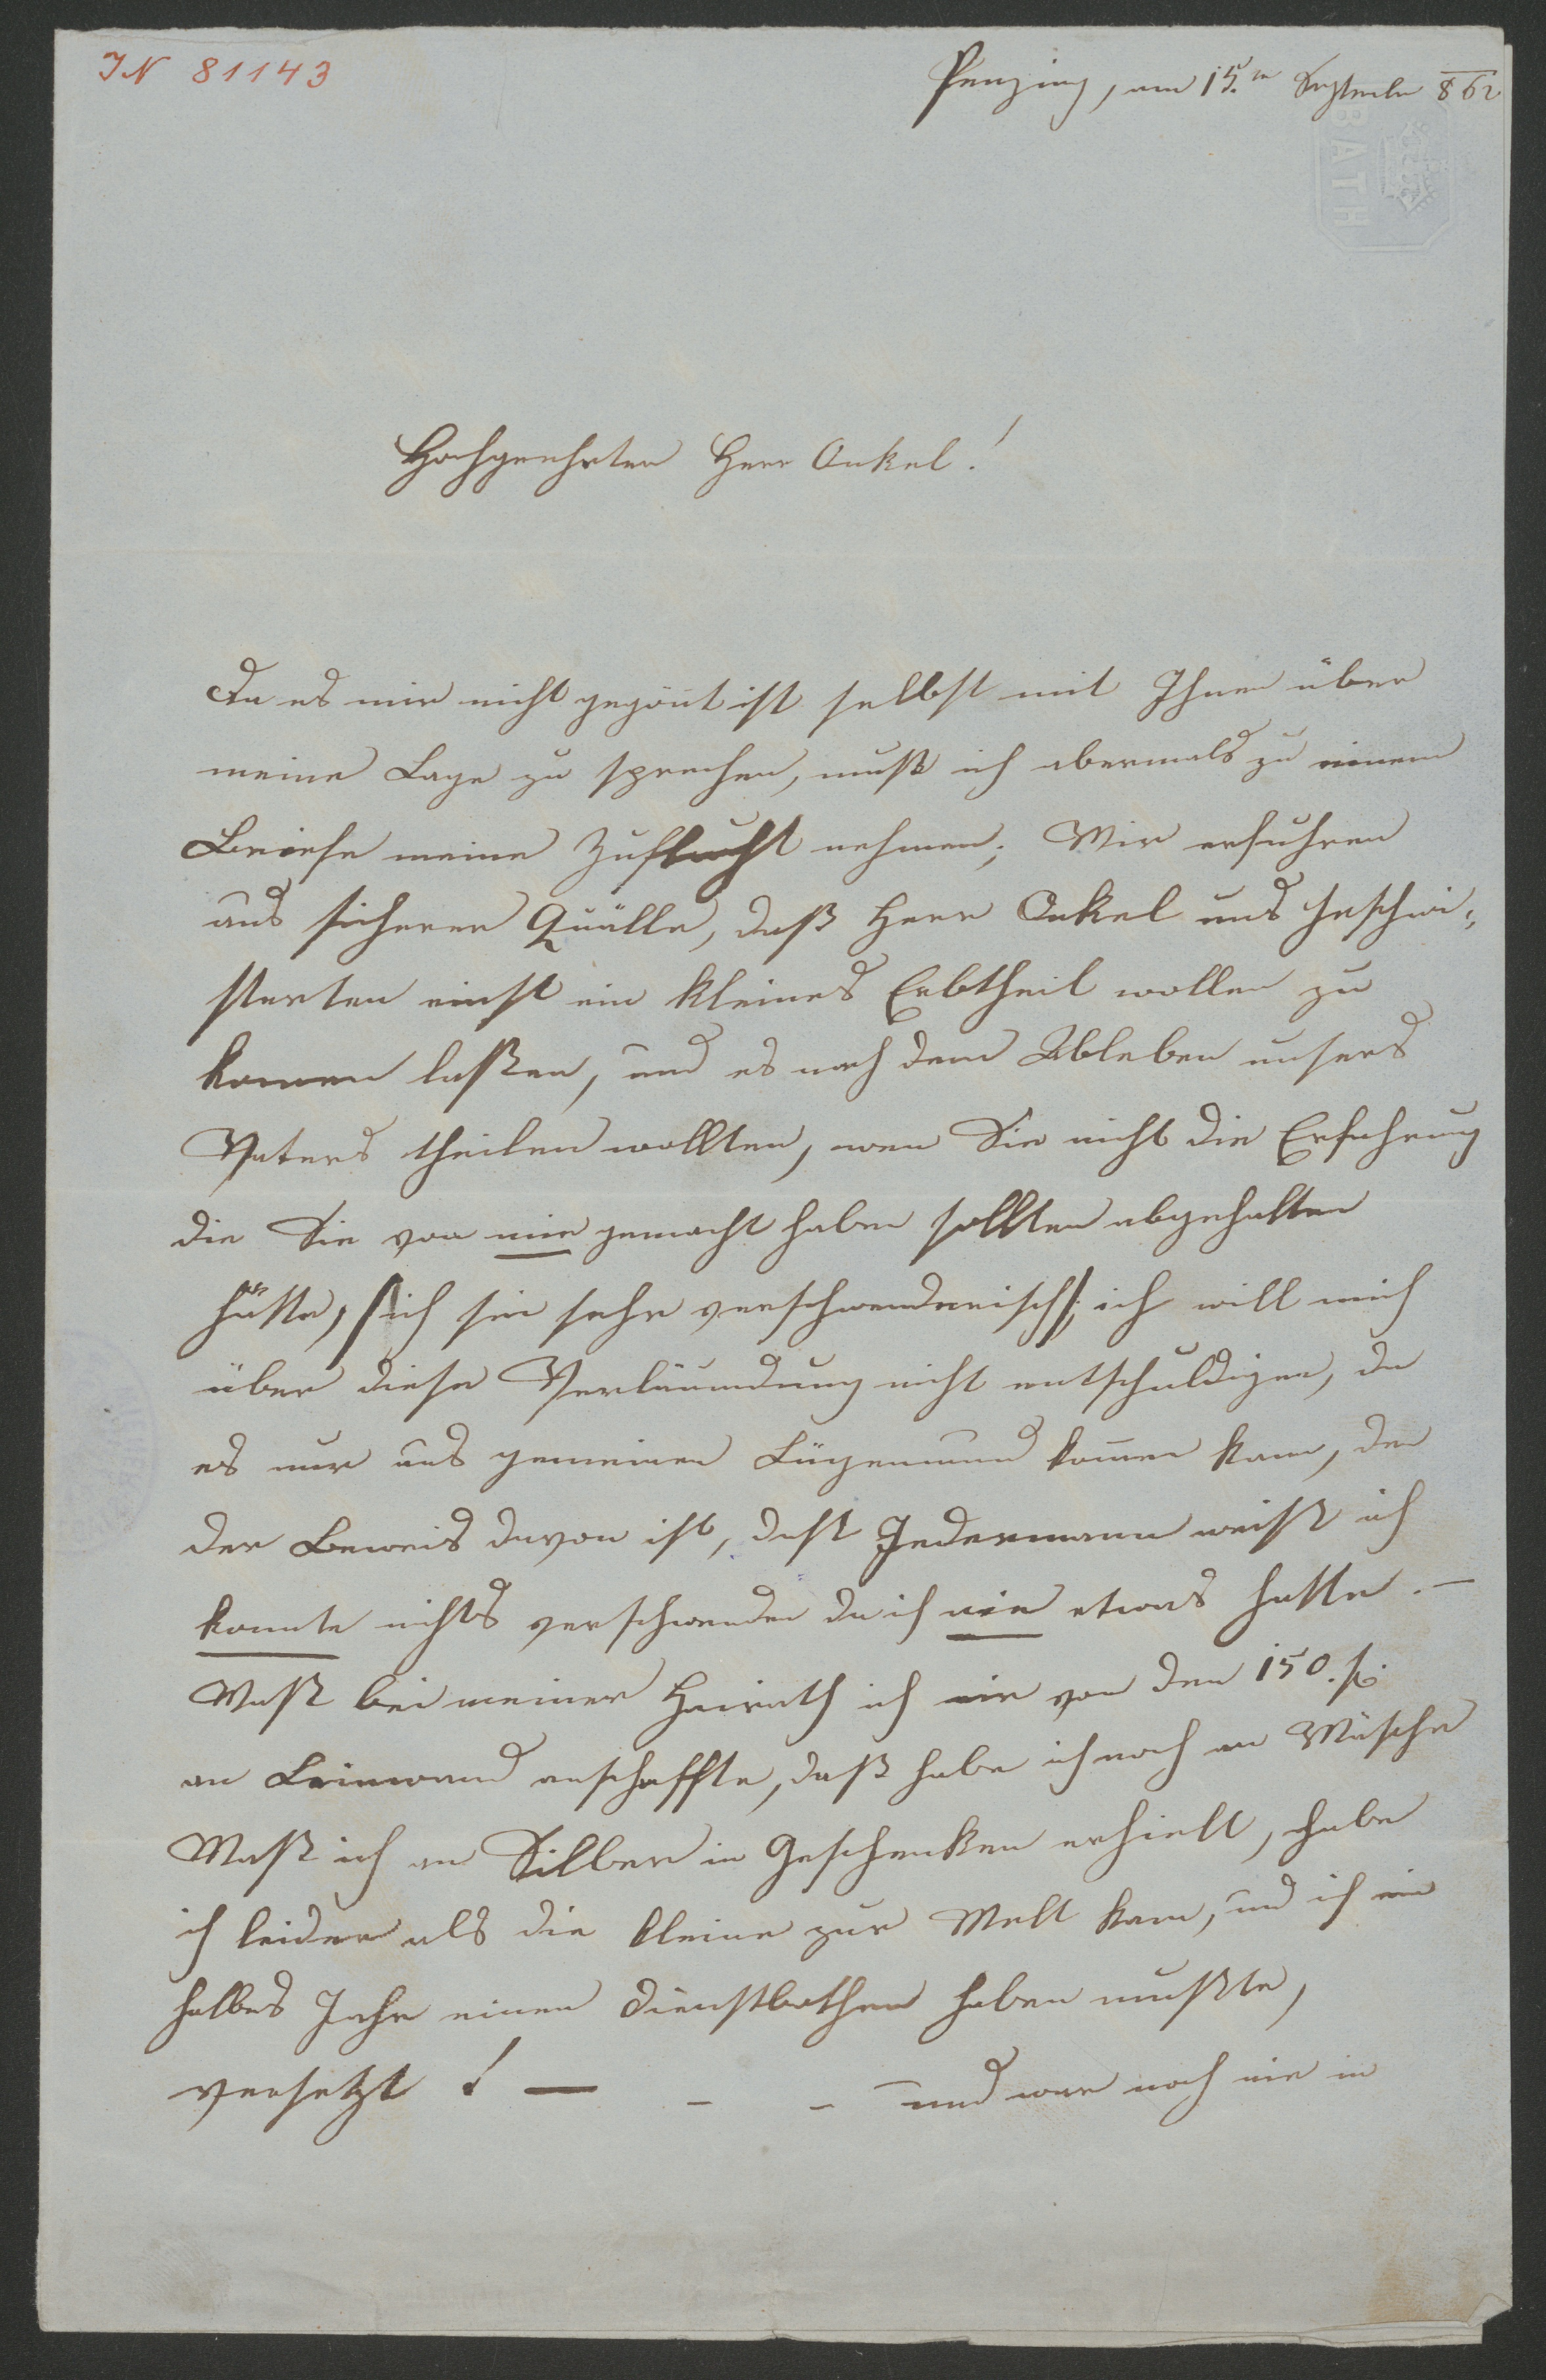 IN 81143
Penzing, am 15.ten September 862
BATH
Hochgeehrter Herr Onkel!
Da es mir nicht gegönt ist selbst mit Ihnen über
meine Lage zu sprechen, muß ich abermals zu einem
Briefe meine Zuflucht nehmen; Wir erfuhren
aus sicherer Quälle, daß Herr Onkel uns Geschwi-
sterten einst ein kleines Erbtheil wollen zu
komen laßen, und es nach dem Ableben unsers
Vaters theilen wollten, wen Sie nicht die Erfahrung
die Sie von mir gemacht haben sollten abgehalten
hätte, /ich sei sehr verschwenderisch/; ich will mich
über diese Verläumdung nicht entschuldigen, da
es nur aus gemeinen Lügenmund komen kann, den
der Beweis davon ist, daß Jedermann weiß ich
konnte nichts verschwenden da ich nie etwas hatte. —
Waß bei meiner Heirath ich mir von den 150. fl.
an Leinwand anschaffte, daß habe ich noch an Wäsche
Waß ich an Silber in Geschenken erhielt, habe
ich leider als die kleine zur Welt kam, und ich ein
halbes Jahr einen Dienstbothen haben mußte,
versetzt! — – – und war noch nie in